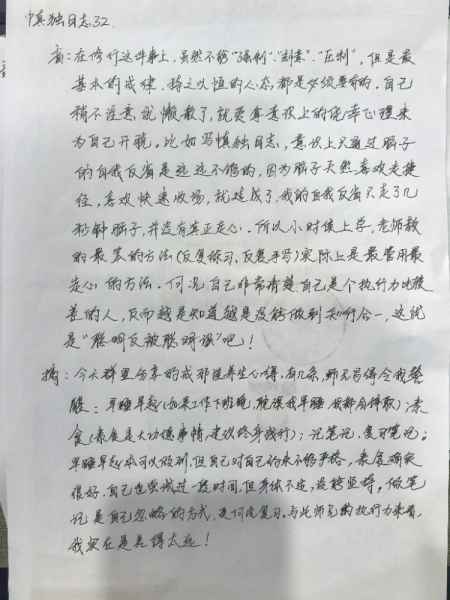 慎独日志32.
省：在修行这件事上，虽然不能“强制”、“刻意”、“压制”，但是最
基本的戒律、持之以恒的心态都是必须要有的。自己
稍不注意就懒散了，就更拿意识上的侥幸心理来
为自己开脱。比如写慎独日志，意识上只通过脑子
的自我反省是远远不够的，因为脑子天然喜欢走捷
径，喜欢快速收场，就造成了我的自我反省只走了几
秒钟脑子，并没有真正走心。所以小时候上学，老师教
的最笨的方法(反复练习、反复手写)实际上是最管用最
走心的方法。何况自己非常清楚自己是个执行力比较
差的人，反而越是知道越是没能做到知行合一，这就
是“聪明反被聪明误”吧！
摘：今天群里分享的戒邪淫养生心得，有几条，师兄品得令我警
醒：早睡早起(如果工作下班晚，
食(素食是大功德事情，建议终身践行)；记笔记，复习笔记。
早睡早起本可以做到，但自己对自己的要求不够严格，素食确实
很好，自己也尝试过一段时间，但身体不适，没能坚持，做笔
记是自己忽略的方式，更何况复习。与此师兄的执行力来看，
我实在是差得太远！